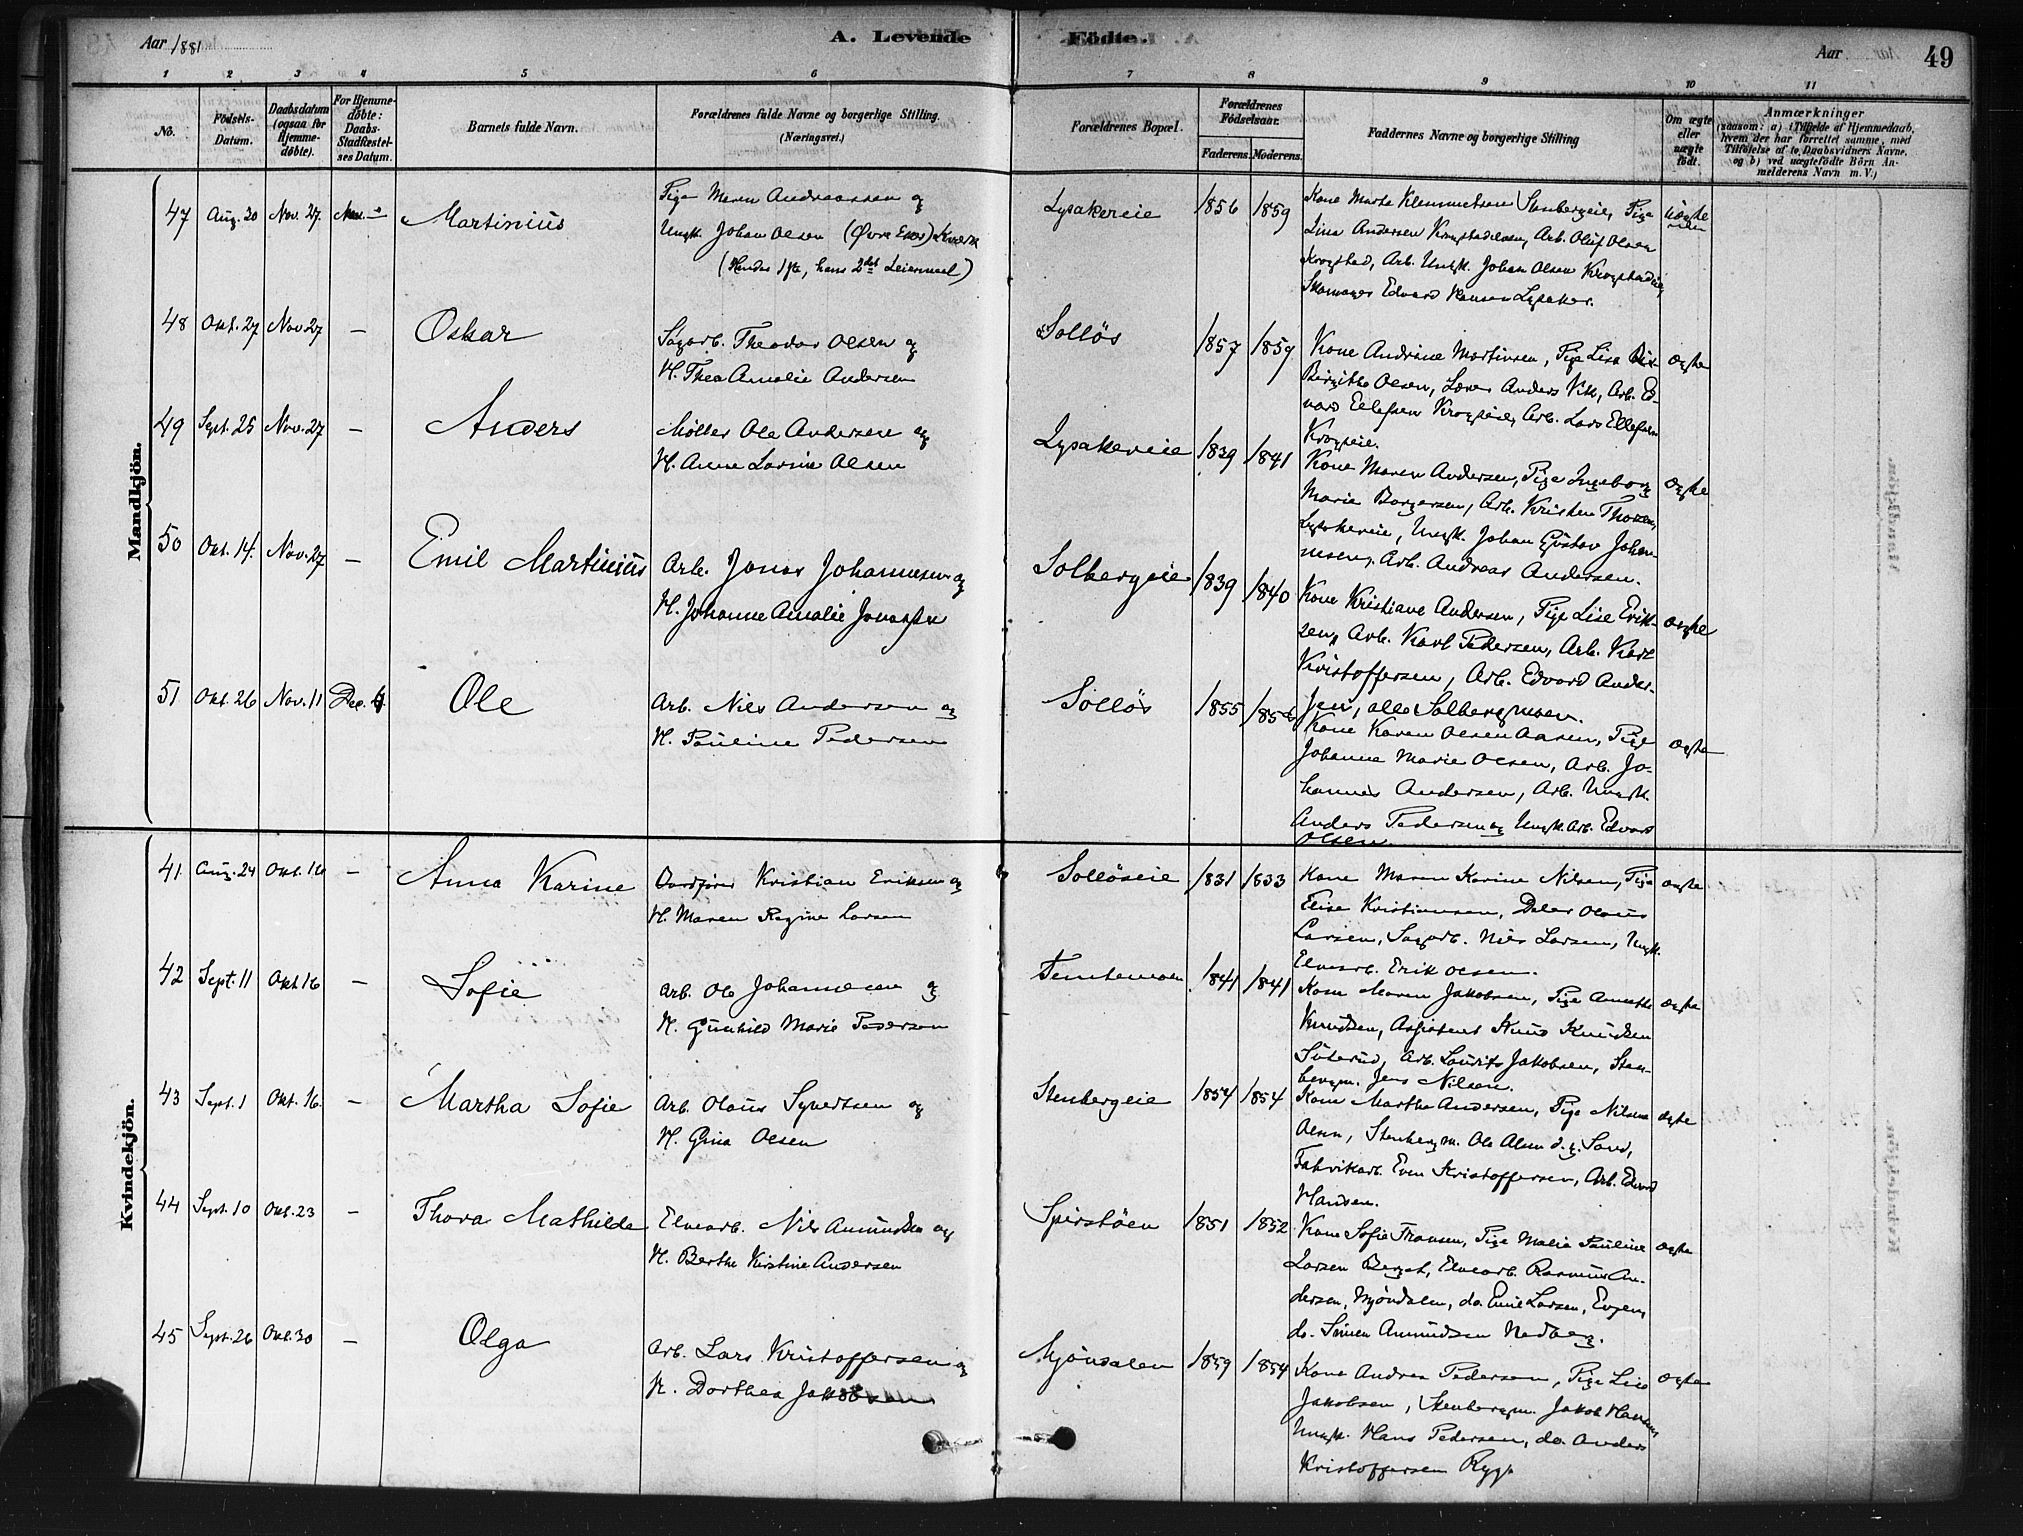 Aar 1881
A. Levende Födte.
Aar
49
1 2 3 4 5 6 7 8 9 10 11
No.
Födsels-Datum.
Daabsdatum (ogsaa for Hjemme-döbte).
For Hjemme-döbte: Daabs-Stadfæstel-ses Datum.
Barnets fulde Navn.
Forældrenes fulde Navne og borgerlige Stilling. (Næringsvei.)
Forældrenes Bopæl.
Forældrenes Födselsaar.
Faderens. Moderens.
Faddernes Navne og borgerlige Stilling
Om ægte eller uægte födt.
Anmærkninger
(saasom: a) i Tilfælde af Hjemmedaab, hvem der har forrettet samme, med Tilföielse af to Daabsvidners Navne, og b) ved uægtefödte Börn An-melderens Navn m. V.)
Mandkjön.
47 Aug. 20 Nov. 27. Martinius
Pige Maren Andreassen og
Ungk. Johan Olsen (Øvre Eker)
(Hendes 1ste, hans 2det Leiermaal)
Lysakereie 1856 1859
Kone Marte Klemmetsen Stenbergeie, Pige
Lina Andersen Arb. Oluf Olsen
Krogstad, Arb. Ungk. Johan Olsen
Skomager Edvard Hansen Lysaker.
Uægte
48 Okt. 27 Nov 27 — Oskar
Sagarb. Theodor Olsen og
H. Thea Amalie Andersen
Solløs 1857 1859
Kone Andrine Martinsen, Pige Lisa
Birgitte Olsen, Anders Vik, Arb. Ed-
vard Ellefsen Krogseie, Arb. Lars Ellefsen
Krogseie.
ægte
49 Sept. 25 Nov. 27 — Anders
Møller Ole Andersen og
H. Anne Lovise Olsen
Lysakereie 1839 1841
Kone Maren Andersen, Pige Ingeborg
Marie Borgersen, Arb. Kristen Thorsen,
Lysakereie, Ungk. Johan Gustav Johan-
nesen, Arb. Andreas Andersen.
ægte
50 Okt. 14. Nov. 27 — Emil Martinius
Arb. Jonas Johannesen og
H. Johanne Amalie
Solbergeie 1839 1840
Kone Kristiane Andersen, Pige Lise Erik-
sen, Arb. Karl Pedersen, Arb. Karl
Kristoffersen, Arb. Edvard Ander-
sen, alle Solbergmoen.
ægte
51 Okt. 26 Nov. 11 Dec. Ole
Arb. Nils Andersen og
H. Pauline Pedersen
Solløs 1855
Kone Karen Olsen Aasen, Pige
Johanne Marie Olsen, Arb. Jo-
hannes Andersen, Arb. Ungk.
Anders Pedersen og Ungk. Arb. Edvard
Olsen.
ægte
Kvindekjön.
41 Aug. 24 Okt. 16 — Anna Karine
Kristian Eriksen og
H. Maren Regine Larsen
Solløseie 1831 1833
Kone Maren Karine Nilsen, Pige
Elise Kristiansen, Olaus
Larsen, Sagarb. Nils Larsen, Ungk.
Elvearb. Erik Olsen.
ægte
42 Sept. 11 Okt 16 — Sofie
Arb. Ole Johannesen og
H. Gunhild Marie Pedersen
Temtemoen 1841 1841
Kone Maren Jakobsen, Pige Annette
Knudsen, Assistent Knud Knudsen
Arb. Laurits Jakobsen, Sten-
bergm. Jens Nilsen.
ægte
43 Sept. 1 Okt. 16. — Martha Sofie
Arb. Olaus Syvertsen og
H. Gina Olsen
Stenbergeie 1854 1854
Kone Marthe Andersen, Pige Nilsine
Olsen, Stenbergm. Ole Olsen d. y. Sand,
Fabrikarb. Even Kristoffersen, Arb. Edvard
Hansen.
ægte
44 Sept. 10 Okt. 23 — Thora Mathilde
Elvearb. Nils Amundsen og
H. Berthe Kirstine Andersen
Spirstøen 1851 1852
Kone Sofie Fransen, Pige Malie Pauline
Larsen Elvearb. Rasmus An-
dersen, Mjøndalen, do. Emil Larsen,
do. Simen Amundsen Nedberg.
ægte
45 Sept. 26 Okt. 30 — Olga
Arb. Lars Kristoffersen og
H. Dorthea Jakobsen
Mjøndalen 1859 1854
Kone Andrea Pedersen, Pige Lise
Jakobsen, Stenbergm. Jakob Hansen,
Ungk. Hans Pedersen, do. Anders
Kristoffersen Ryg.
ægte